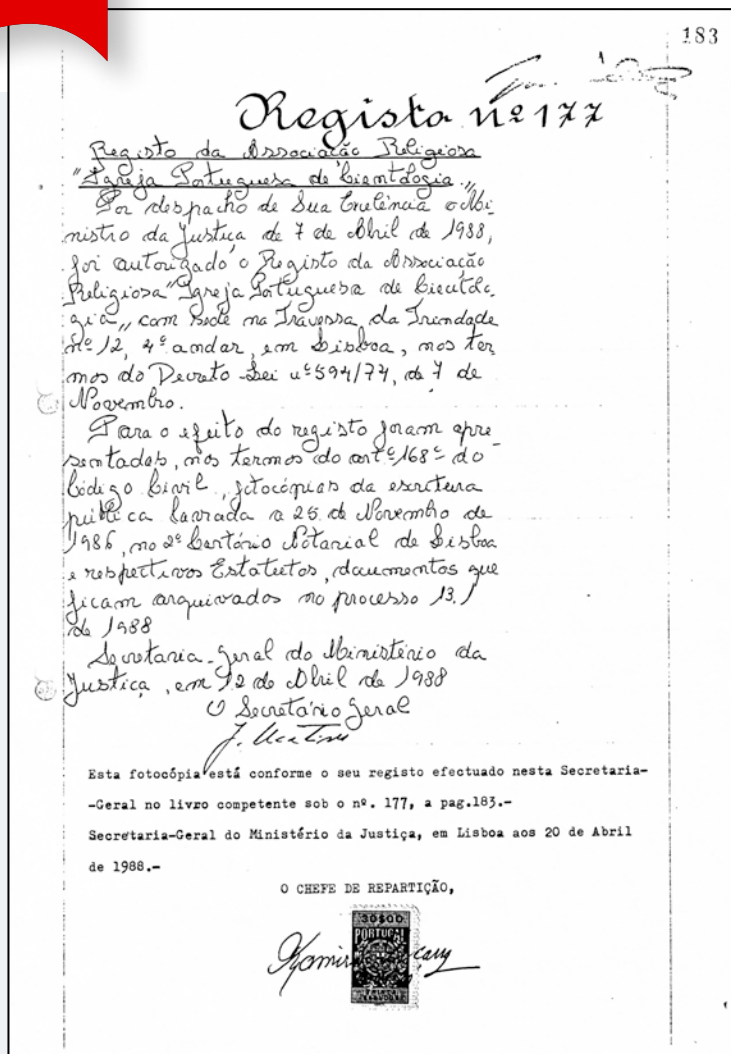 183
Registo nº 177
Registo da Associação Religiosa
"Igreja Portuguesa de Cientologia"
Por despacho de Sua Excelência o Mi-
nistro da Justiça de 7 de Abril de 1988,
foi autorizado o Registo da Associação
Religiosa "Igreja Portuguesa de Cientolo-
gia" com sede na Travessa da Trindade
nº 12, 4º andar, em Lisboa, nos ter
mos do Decreto-Lei nº 594/74, de 7 de
Novembro.
Para o efeito do registo foram apre
sentadas, nos termos do artº 168º do
Código Civil, fotocópias da escritura
pública lavrada a 25 de Novembro de
1986, no 2º Cartório Notarial de Lisboa
e respectivos Estatutos, documentos que
ficam arquivados no processo 13.1
de 1988
Secretaria-Geral do Ministério da
Justiça, em 12 de Abril de 1988
O Secretário Geral
Esta fotocópia está conforme o seu registo efectuado nesta Secretaria-
-Geral no livro competente sob o nº. 177, a pag.183.-
Secretaria-Geral do Ministério da Justiça, em Lisboa aos 20 de Abril
de 1988.-
O CHEFE DE REPARTIÇÃO,
30$00
PORTUGAL